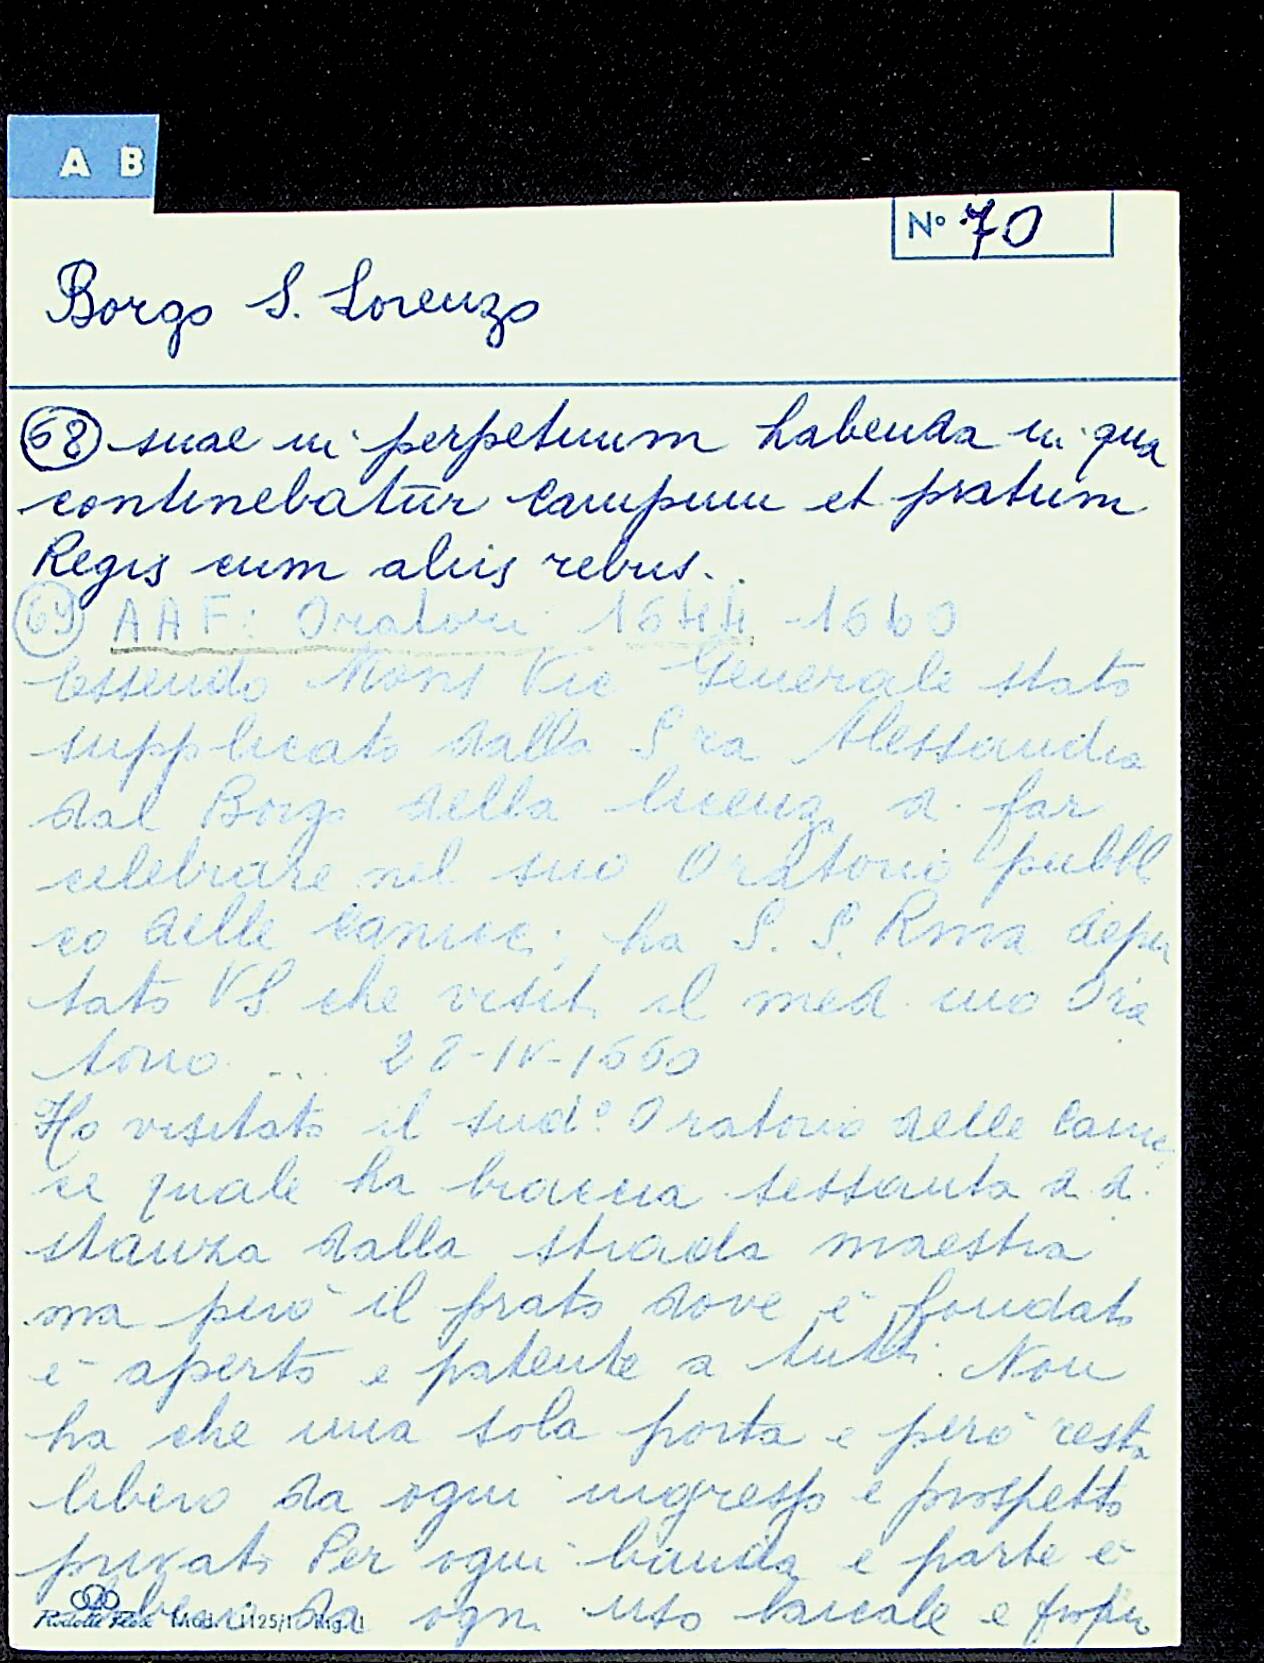 A B
Nº 70
Borgo S. Lorenzo
(68) suae in perpetuum habenda in qua
continebatur campum et pratum
Regis cum aliis rebus..
(69) AAF: Oratori 1644-1660
Essendo Mons Vic Generale stato
supplicato dalla S ra Alessandra
dal Borgo della licenza di far
celebrare nel suo Oratorio pubbli
co delle ; ha S. S. Rma depu
tato VS che visiti il med. mo Ora
torio ... 28-IV-1660
Ho visitato il sud.º Oratorio delle
ce quale ha braccia sessanta di di
stanza dalla strada maestra
ma però il prato dove è fondato
è aperto e patente a tutti. Non
ha che una sola porta e però resta
libero da ogni ingresso e prospetto
privato Per ogni banda e parte è
libero da ogni uso laicale e